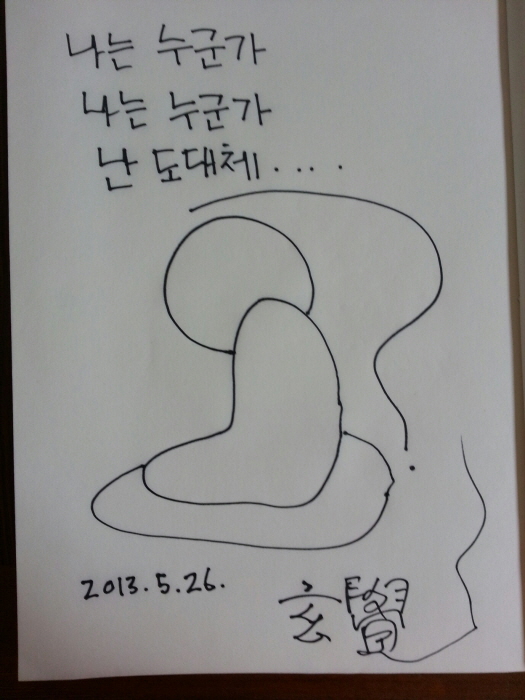 나는 누군가
나는 누군가
난 도대체 . . . .
2013.5.26.
玄覺